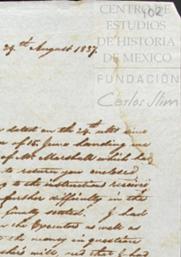 CENTRO DE
ESTUDIOS
DE HISTORIA
DE MEXICO
FUNDACIÓN
Carlos Slim
102
29th August 1837.
dated on the 24th ulto since
of 15 June handing me
of Mr. Marshall which had
to return you enclosed
to the instructions received
further difficulty in the
finally settled. I had
the Executor as well as
the money in question
will see that I had